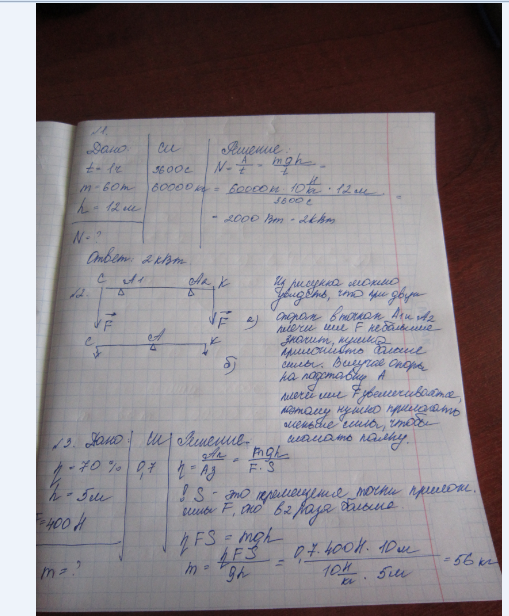 Дано
СИ
Решение:
t = 1ч
3600с
N = A/t = mgh/t =
m - 60т
60000кг
= 60000кг · 10 Н/кг · 12м / 3600с
h = 12м
= 2000 Вт = 2кВт
N = ?
Ответ: 2 кВт
12.
C
A1
A2
K
F
F
а)
C
A
K
б)
Из рисунка можно
увидеть, что при двух
опорах в точках A1 и A2
плечи сил F небольшие
значит, нужно
приложить большие
силы. В случае опоры
на подставку А
плечи сил F увеличивается,
поэтому нужно прилагать
меньше силы, чтобы
сломать палку.
13. Дано:
СИ
Решение.
η = 70 %
0,7
η = Aп/Aз = mgh/F · S
h = 5м
S - это перемещения точки прилож.
силы F, оно в 2 раза больше
F=400 Н
η FS = mgh
m = ?
m = ηFS/gh = 0,7·400Н · 10м / 10 Н/кг · 5м = 56 кг